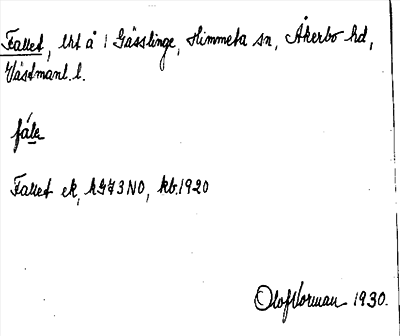 Fallet, lht å 1 Gässlinge, Himmeta sn, Åkerbo hd,
Västmanl. l.
fála
Fallet ek, k773 NO, kb. 1920
Olof Norman 1930.